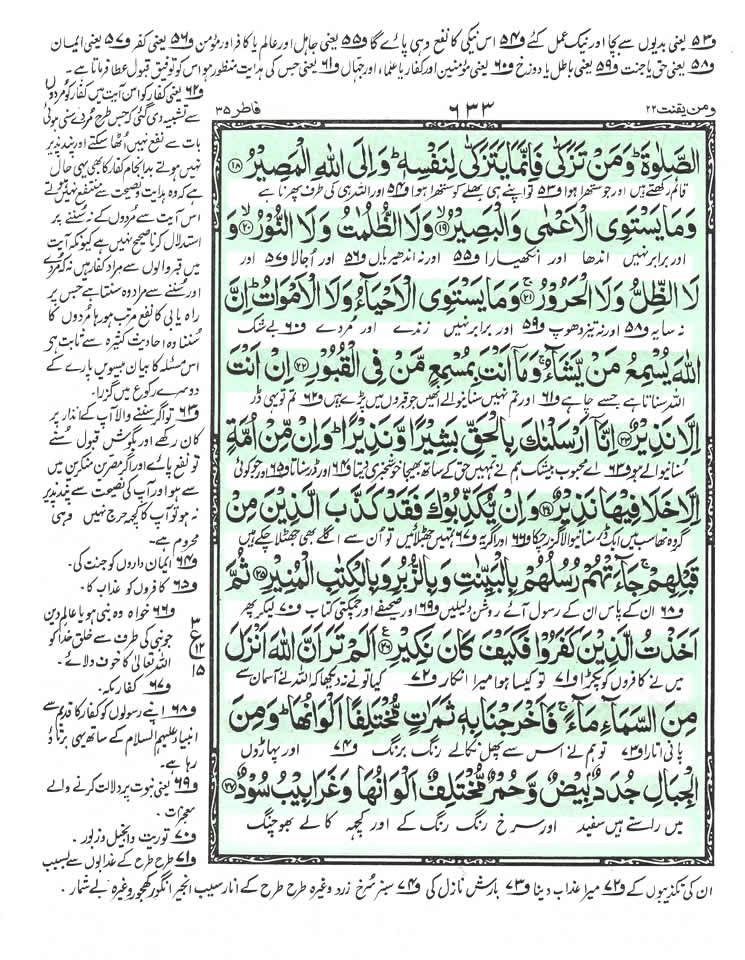 و۵۳ یعنی بدیوں سے بچا اور نیک عمل کئے و۵۴ اس نیکی کا نفع وہی پائے گا و۵۵ یعنی جاہل اور عالم یا کافر اور مؤمن و۵۶ یعنی کفر و۵۷ یعنی ایمان
و۵۸ یعنی حق یا جنت و۵۹ یعنی باطل یا دوزخ و۶۰ یعنی مؤمنین اور کفار یا علماء اور جہال و۶۱ یعنی جس کی ہدایت منظور ہو اس کو توفیق قبول عطا فرماتا ہے۔
ومن یقنت ۲۲
۶۳۳
فاطر ۳۵
الصَّلٰوةَ ؕ وَمَنْ تَزَكّٰى فَاِنَّمَا يَتَزَكّٰى لِنَفْسِهٖ ؕ وَاِلَى اللّٰهِ الْمَصِيْرُ ﴿۱۸﴾
قائم رکھتے ہیں اور جو ستھرا ہوا و۵۳ تو اپنے ہی بھلے کو ستھرا ہوا و۵۴ اور اللہ ہی کی طرف پھرنا ہے
وَمَا يَسْتَوِى الْاَعْمٰى وَالْبَصِيْرُ ﴿۱۹﴾ وَلَا الظُّلُمٰتُ وَلَا النُّوْرُ ﴿۲۰﴾ وَ
اور برابر نہیں اندھا اور انکھیارا و۵۵ اور نہ اندھیریاں و۵۶ اور اُجالا و۵۷ اور
لَا الظِّلُّ وَلَا الْحَرُوْرُ ﴿۲۱﴾ وَمَا يَسْتَوِى الْاَحْيَآءُ وَلَا الْاَمْوَاتُ ؕ اِنَّ
نہ سایہ و۵۸ اور نہ تیز دھوپ و۵۹ اور برابر نہیں زندے اور مُردے و۶۰ بے شک
اللّٰهَ يُسْمِعُ مَنْ يَّشَآءُ ۚ وَمَآ اَنْتَ بِمُسْمِعٍ مَّنْ فِى الْقُبُوْرِ ﴿۲۲﴾ اِنْ اَنْتَ
اللہ سناتا ہے جسے چاہے و۶۱ اور تم نہیں سنانے والے انھیں جو قبروں میں پڑے ہیں و۶۲ تم تو یہی ڈر
اِلَّا نَذِيْرٌ ﴿۲۳﴾ اِنَّآ اَرْسَلْنٰكَ بِالْحَقِّ بَشِيْرًا وَّنَذِيْرًا ؕ وَاِنْ مِّنْ اُمَّةٍ
سنانے والے ہو و۶۳ اے محبوب بیشک ہم نے تمہیں حق کے ساتھ بھیجا خوشخبری دیتا و۶۴ اور ڈر سناتا و۶۵ اور جو کوئی
اِلَّا خَلَا فِيْهَا نَذِيْرٌ ﴿۲۴﴾ وَاِنْ يُّكَذِّبُوْكَ فَقَدْ كَذَّبَ الَّذِيْنَ مِنْ
گروہ تھا سب میں ایک ڈر سنانے والا گزر چکا و۶۶ اور اگر یہ و۶۷ تمہیں جھٹلائیں تو اُن سے اگلے بھی جھٹلا چکے ہیں
قَبْلِهِمْ ۚ جَآءَتْهُمْ رُسُلُهُمْ بِالْبَيِّنٰتِ وَبِالزُّبُرِ وَبِالْكِتٰبِ الْمُنِيْرِ ﴿۲۵﴾ ثُمَّ
و۶۸ ان کے پاس ان کے رسول آئے روشن دلیلیں و۶۹ اور صحیفے اور چمکتی کتاب و۷۰ لیکر پھر
اَخَذْتُ الَّذِيْنَ كَفَرُوْا فَكَيْفَ كَانَ نَكِيْرِ ﴿۲۶﴾ اَلَمْ تَرَ اَنَّ اللّٰهَ اَنْزَلَ
میں نے کافروں کو پکڑا و۷۱ تو کیسا ہوا میرا انکار و۷۲ کیا تو نے نہ دیکھا کہ اللہ نے آسمان سے
مِنَ السَّمَآءِ مَآءً ۚ فَاَخْرَجْنَا بِهٖ ثَمَرٰتٍ مُّخْتَلِفًا اَلْوَانُهَا ؕ وَمِنَ
پانی اتارا و۷۳ تو ہم نے اس سے پھل نکالے رنگ برنگ و۷۴ اور پہاڑوں
الْجِبَالِ جُدَدٌۢ بِيْضٌ وَّحُمْرٌ مُّخْتَلِفٌ اَلْوَانُهَا وَغَرَابِيْبُ سُوْدٌ ﴿۲۷﴾
میں راستے ہیں سفید اور سرخ رنگ رنگ کے اور کچھ کالے بھوچنگ
و۶۲ یعنی کفار کو اس آیت میں مُردوں
سے تشبیہ دی گئی کہ جس طرح مُردے سنی ہوئی
بات سے نفع نہیں اُٹھا سکتے اور پند پذیر
نہیں ہوتے بد انجام کفار کا بھی یہی حال
ہے کہ وہ ہدایت و نصیحت سے منتفع نہیں ہوتے
اس آیت سے مُردوں کے نہ سننے پر
استدلال کرنا صحیح نہیں ہے کیونکہ آیت
میں قبر والوں سے مراد کفار ہیں نہ کہ مُردے
اور سُننے سے مراد وہ سننا ہے جس پر
راہ یابی کا نفع مرتب ہو رہا مُردوں کا
سُننا وہ احادیث کثیرہ سے ثابت ہے
اس مسئلہ کا بیان بیسویں پارے کے
دوسرے رکوع میں گزرا۔
و۶۳ تو اگر سننے والا آپ کے انذار پر
کان رکھے اور بگوش قبول سُنے
تو نفع پائے اور اگر مصرین منکرین میں
سے ہو اور آپ کی نصیحت سے پند پذیر
نہ ہو تو آپ کا کچھ حرج نہیں وہی
محروم ہے۔
و۶۴ ایمان داروں کو جنت کی۔
و۶۵ کافروں کو عذاب کا۔
و۶۶ خواہ وہ نبی ہو یا عالم دین
جو نبی کی طرف سے خلق خدا کو
اللہ تعالیٰ کا خوف دلائے۔
و۶۷ کفار مکہ۔
۳
ع
۱۲
۱۵
و۶۸ اپنے رسولوں کو کفار کا قدیم سے
انبیاء علیہم السلام کے ساتھ یہی برتاؤ
رہا ہے۔
و۶۹ یعنی نبوت پر دلالت کرنے والے
معجزات۔
و۷۰ توریت و انجیل و زبور۔
و۷۱ طرح طرح کے عذابوں سے بسبب
ان کی تکذیبوں کے و۷۲ میرا عذاب دینا و۷۳ بارش نازل کی و۷۴ سبز سُرخ زرد وغیرہ طرح طرح کے انار سیب انجیر انگور کھجور وغیرہ بے شمار۔